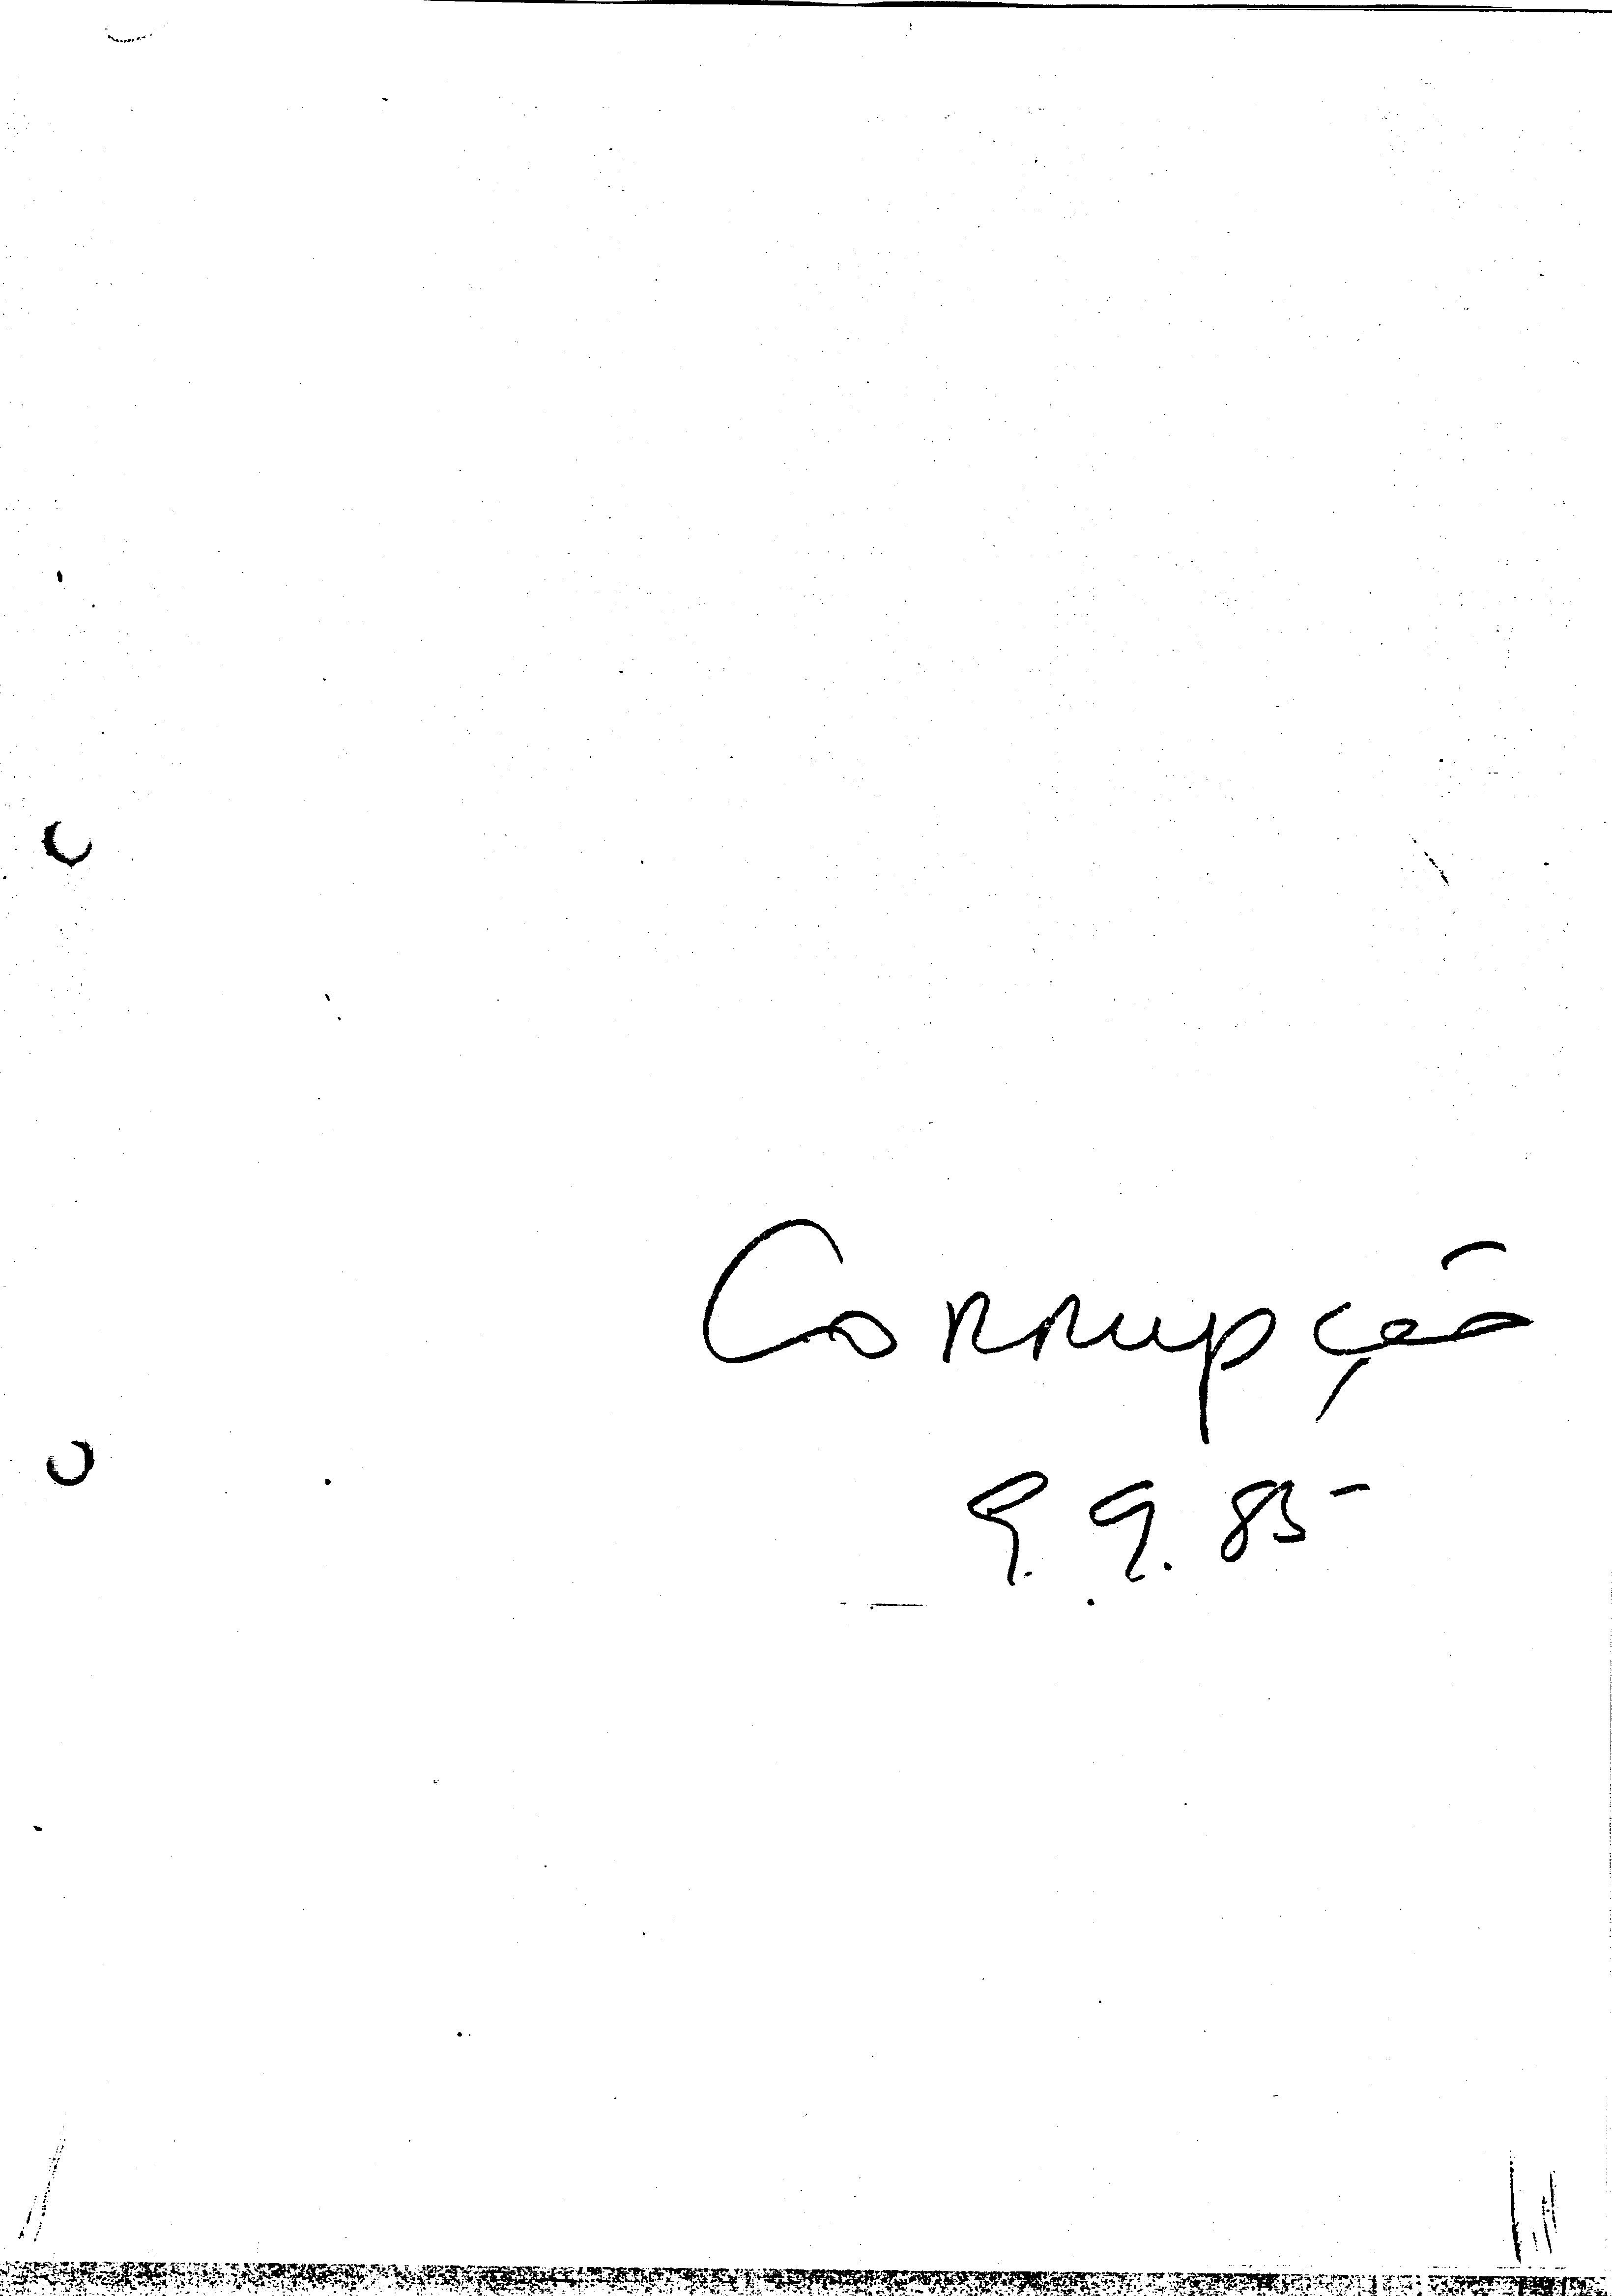 Corrupção
9.9.85